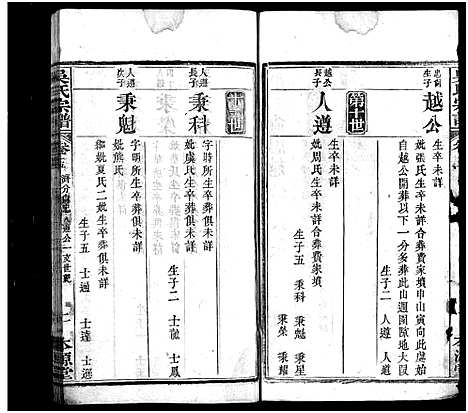 忠嗣生子
越公
生卒未詳
妣張氏生卒未詳合葬費家墳申山寅向此處始
自越公開葬以下一分多葬此山週圍隙地大限
生子二 人遵 人道
第 世
越公長子
人遵
生卒未詳
妣周氏生卒未詳合葬費家墳
生子五 秉科 秉魁 秉星
秉榮 秉耀
世
人遵長子
秉科
字時所生卒葬俱未詳
妣虞氏生卒葬俱未詳
生子二 士龍 士鳳
人遵次子
秉魁
字明所生卒葬俱未詳
妣熊氏
繼妣夏氏二妣生卒葬俱未詳
生子五 士遜 士達
吳氏宗譜
卷之五
公一支世系
本源堂